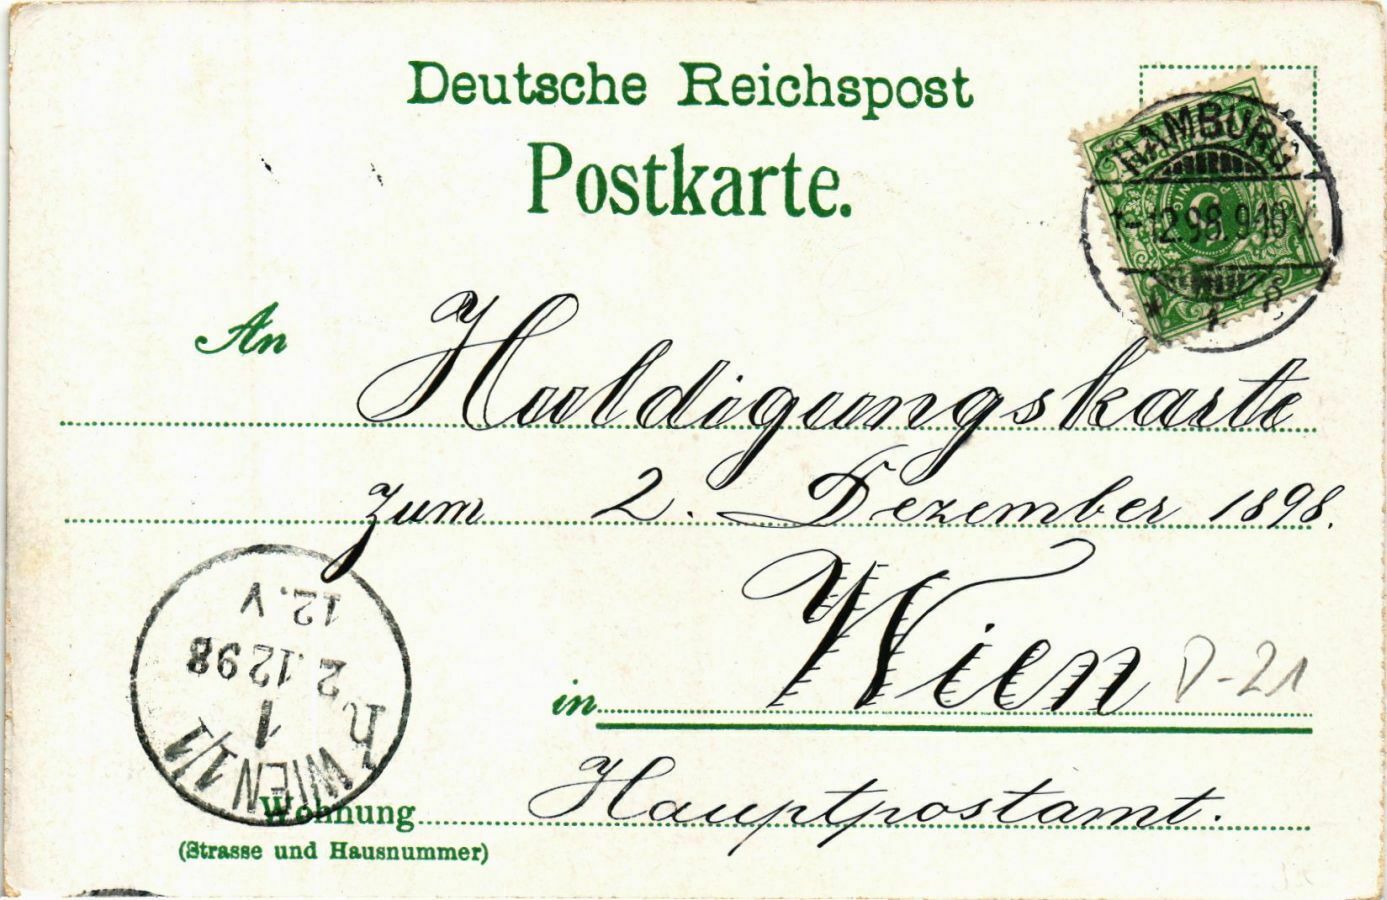 Deutsche Reichspost
Postkarte.
HAMBURG
1-12.98.9-10V
* 1 *
5
An Huldigungskarte
zum 2. Dezember 1898.
in Wien
D-21
12.V
2.12.98
1
WIEN 1/1
Wohnung Hauptpostamt.
(Strasse und Hausnummer)